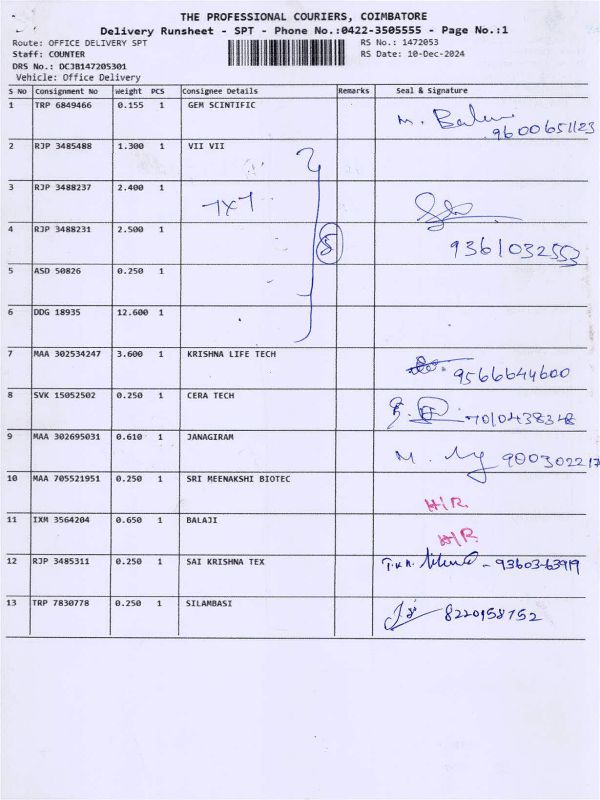 THE PROFESSIONAL COURIERS, COIMBATORE
Delivery Runsheet - SPT - Phone No.:0422-3505555 - Page No.:1
Route: OFFICE DELIVERY SPT RS No.: 1472053
Staff: COUNTER RS Date: 10-Dec-2024
DRS No.: DCJB147205301
Vehicle: Office Delivery
S No Consignment No Weight PCS Consignee Details Remarks Seal & Signature
1 TRP 6849466 0.155 1 GEM SCINTIFIC
9600651123
2 RJP 3485488 1.300 1 VII VII
3 RJP 3488237 2.400 1
4 RJP 3488231 2.500 1
9361032553
5 ASD 50826 0.250 1
6 DDG 18935 12.600 1
7 MAA 302534247 3.600 1 KRISHNA LIFE TECH
9566644600
8 SVK 15052502 0.250 1 CERA TECH
7010438348
9 MAA 302695031 0.610 1 JANAGIRAM
900302217
10 MAA 705521951 0.250 1 SRI MEENAKSHI BIOTEC
H/R
11 IXM 3564204 0.650 1 BALAJI
H/R
12 RJP 3485311 0.250 1 SAI KRISHNA TEX
- 9360363919
13 TRP 7830778 0.250 1 SILAMBASI
8220158752